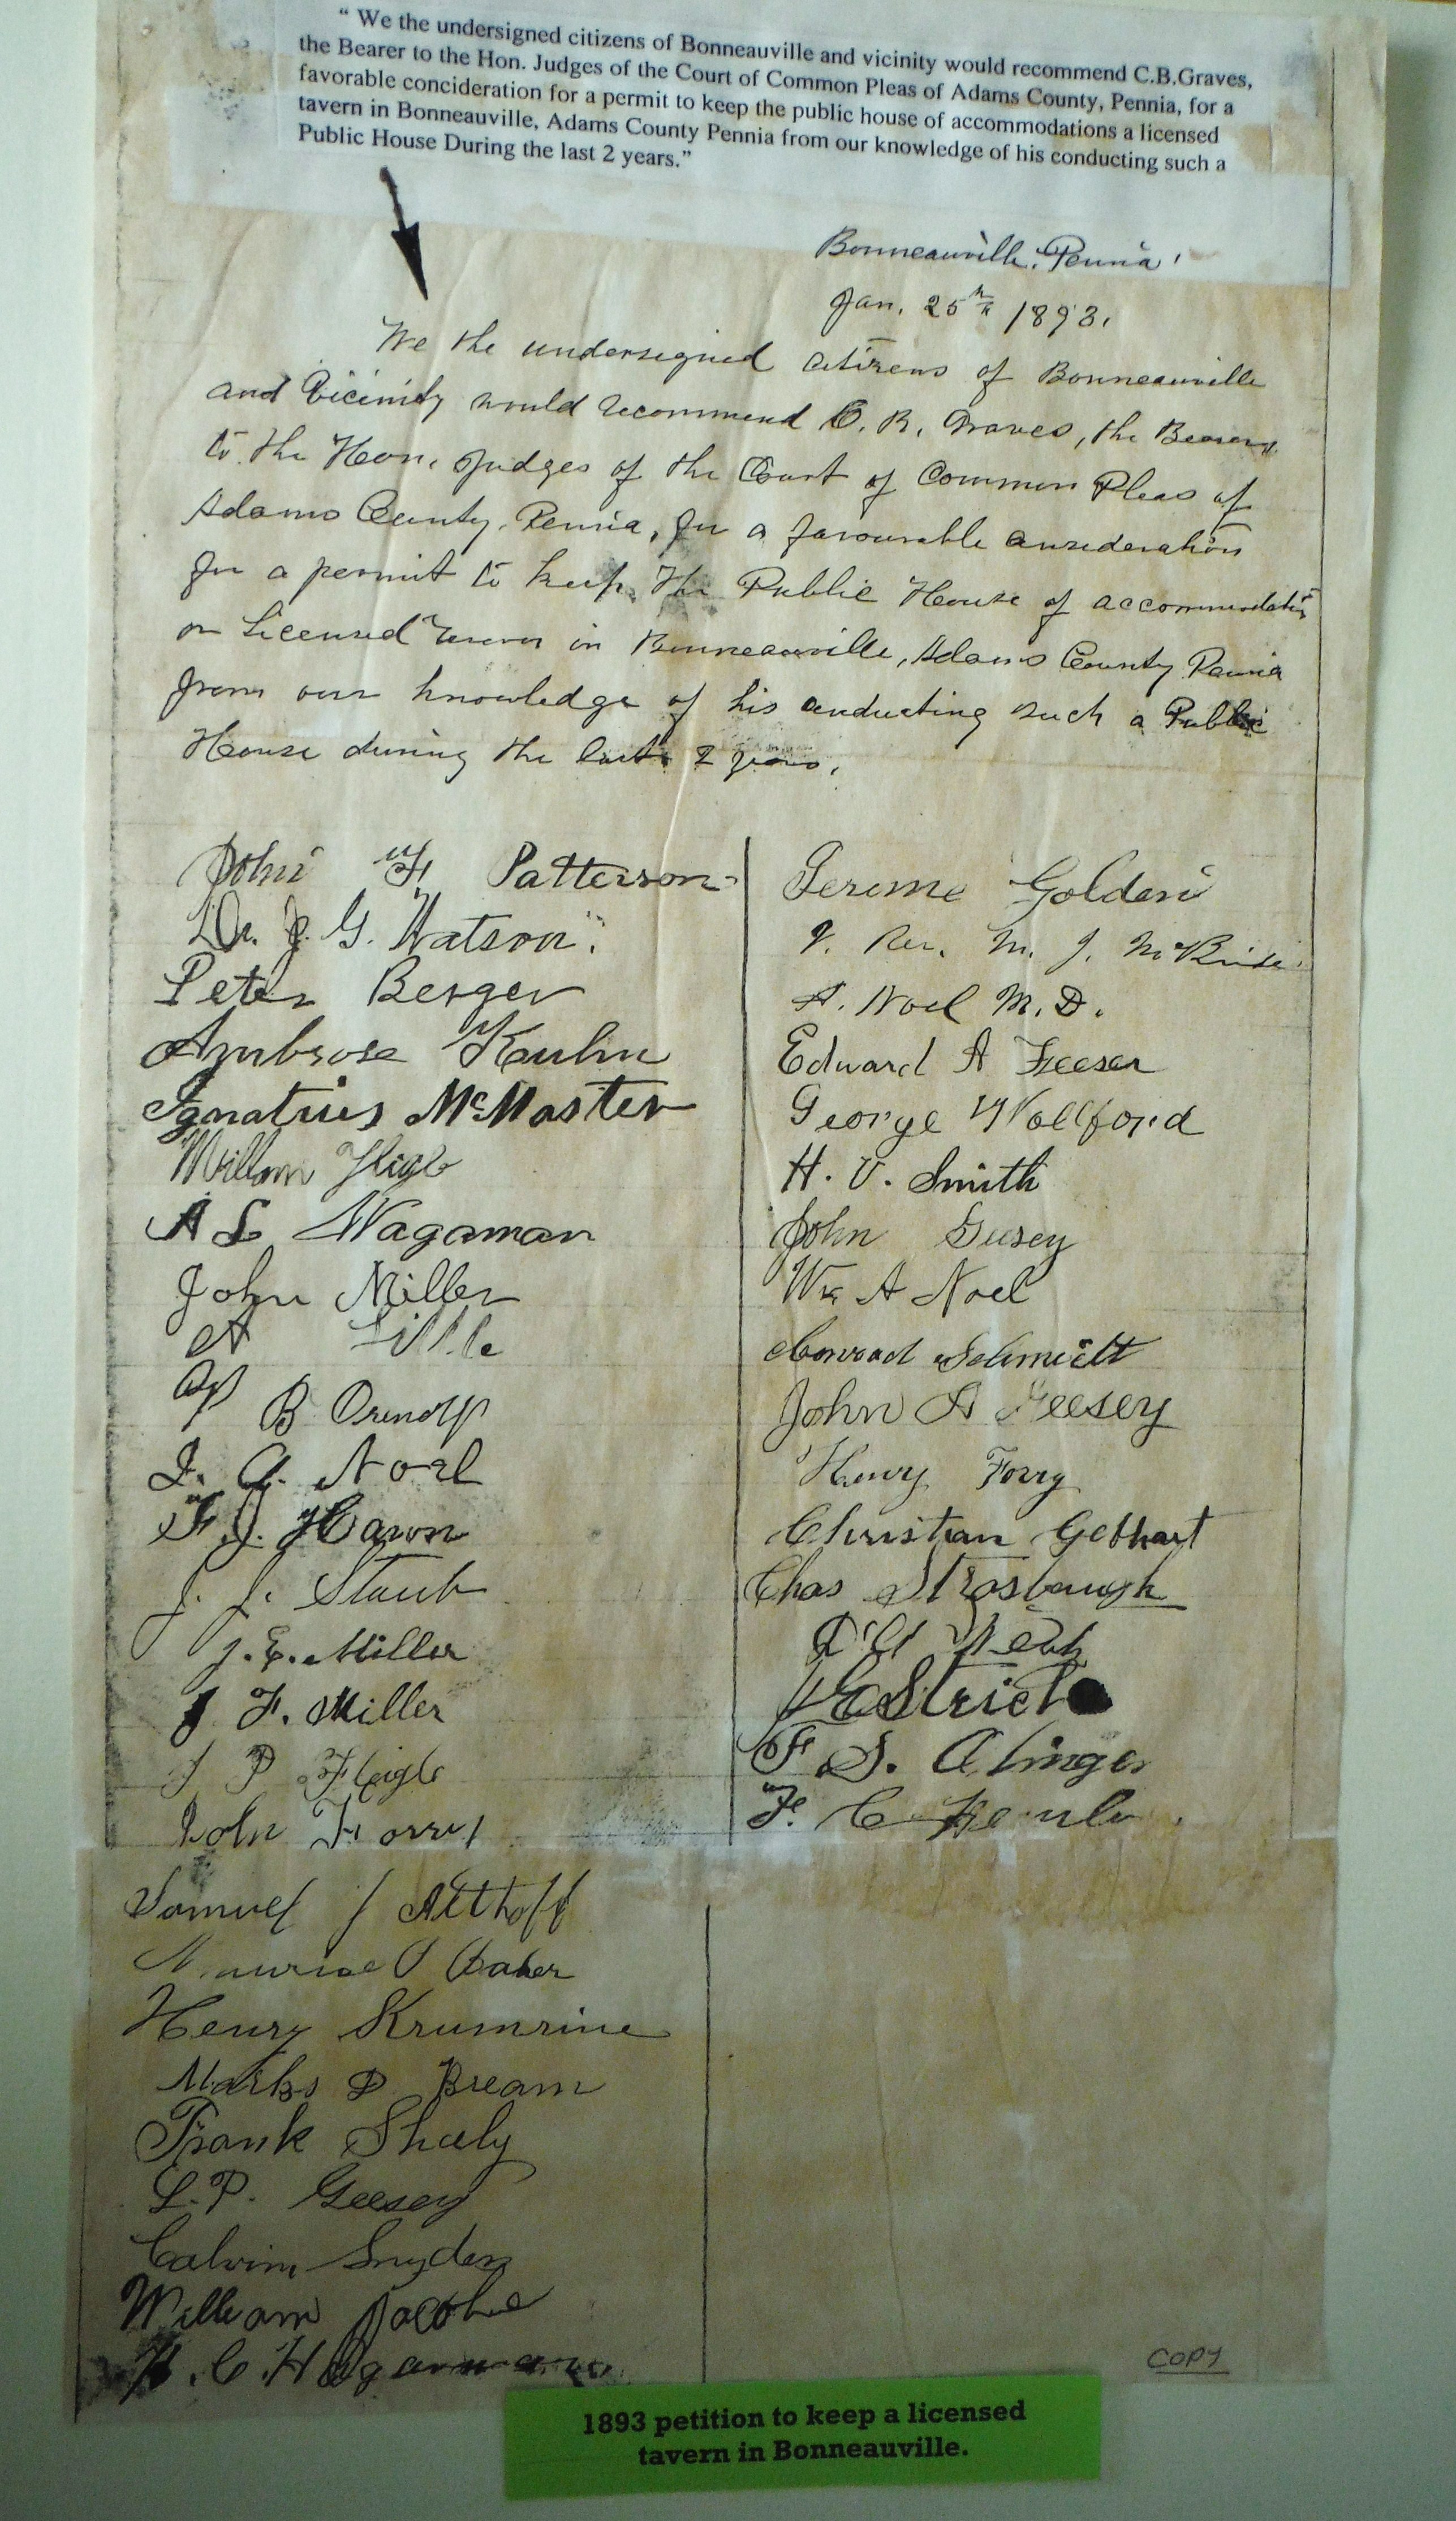 “ We the undersigned citizens of Bonneauville and vicinity would recommend C.B.Graves,
the Bearer to the Hon. Judges of the Court of Common Pleas of Adams County, Pennia, for a
favorable concideration for a permit to keep the public house of accommodations a licensed
tavern in Bonneauville, Adams County Pennia from our knowledge of his conducting such a
Public House During the last 2 years.”
Bonneauville, Pennia
Jan. 25th 1893.
We the undersigned citizens of Bonneauville
and Vicinity would recommend C. B. Graves, the Bearer
to the Hon. Judges of the Court of Common Pleas of
Adams County, Pennia, for a favourable consideration
for a permit to keep the Public House of accommodation
or Licensed Tavern in Bonneauville, Adams County Pennia
from our knowledge of his conducting such a Public
House during the last 2 years.
John F Patterson
Dr. J. G. Watson.
Peter Berger
Ambrose Kuhn
Ignatius McMaster
William
A L Wagaman
John Miller
A Little
B Orndoff
J. A. Noel
F. J.
J. J. Staub
J. E. Miller
J F. Miller
J P Fleigle
John Forry
Samuel J Althoff
Maurice Baker
Henry Krumrine
Marks D Bream
Frank Shaly
L. P. Geesey
Calvin Snyder
William Jacobs
H. C. Hagarman
Jerome Golden
V. Rev. M. J. McBride
A. Noel M. D.
Edward A Feeser
George Wollford
H. V. Smith
John Geesey
Wm A Noel
Conrad Schmidt
John A Geesey
Henry Forry
Christian Gebhart
Chas Strasbaugh
Strict
F S.
F. C
COPY
1893 petition to keep a licensed
tavern in Bonneauville.